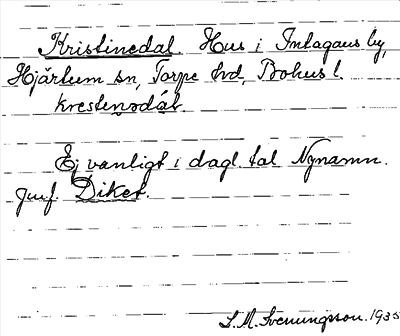 Kristinedal. Hus i Intagans by,
Hjärtum sn, Torpe hd, Bohus l.
krestenədάl.
Ej vanligt i dagl. tal Nynamn.
Jmf. Diket.
S. M. Svenungsson. 1935